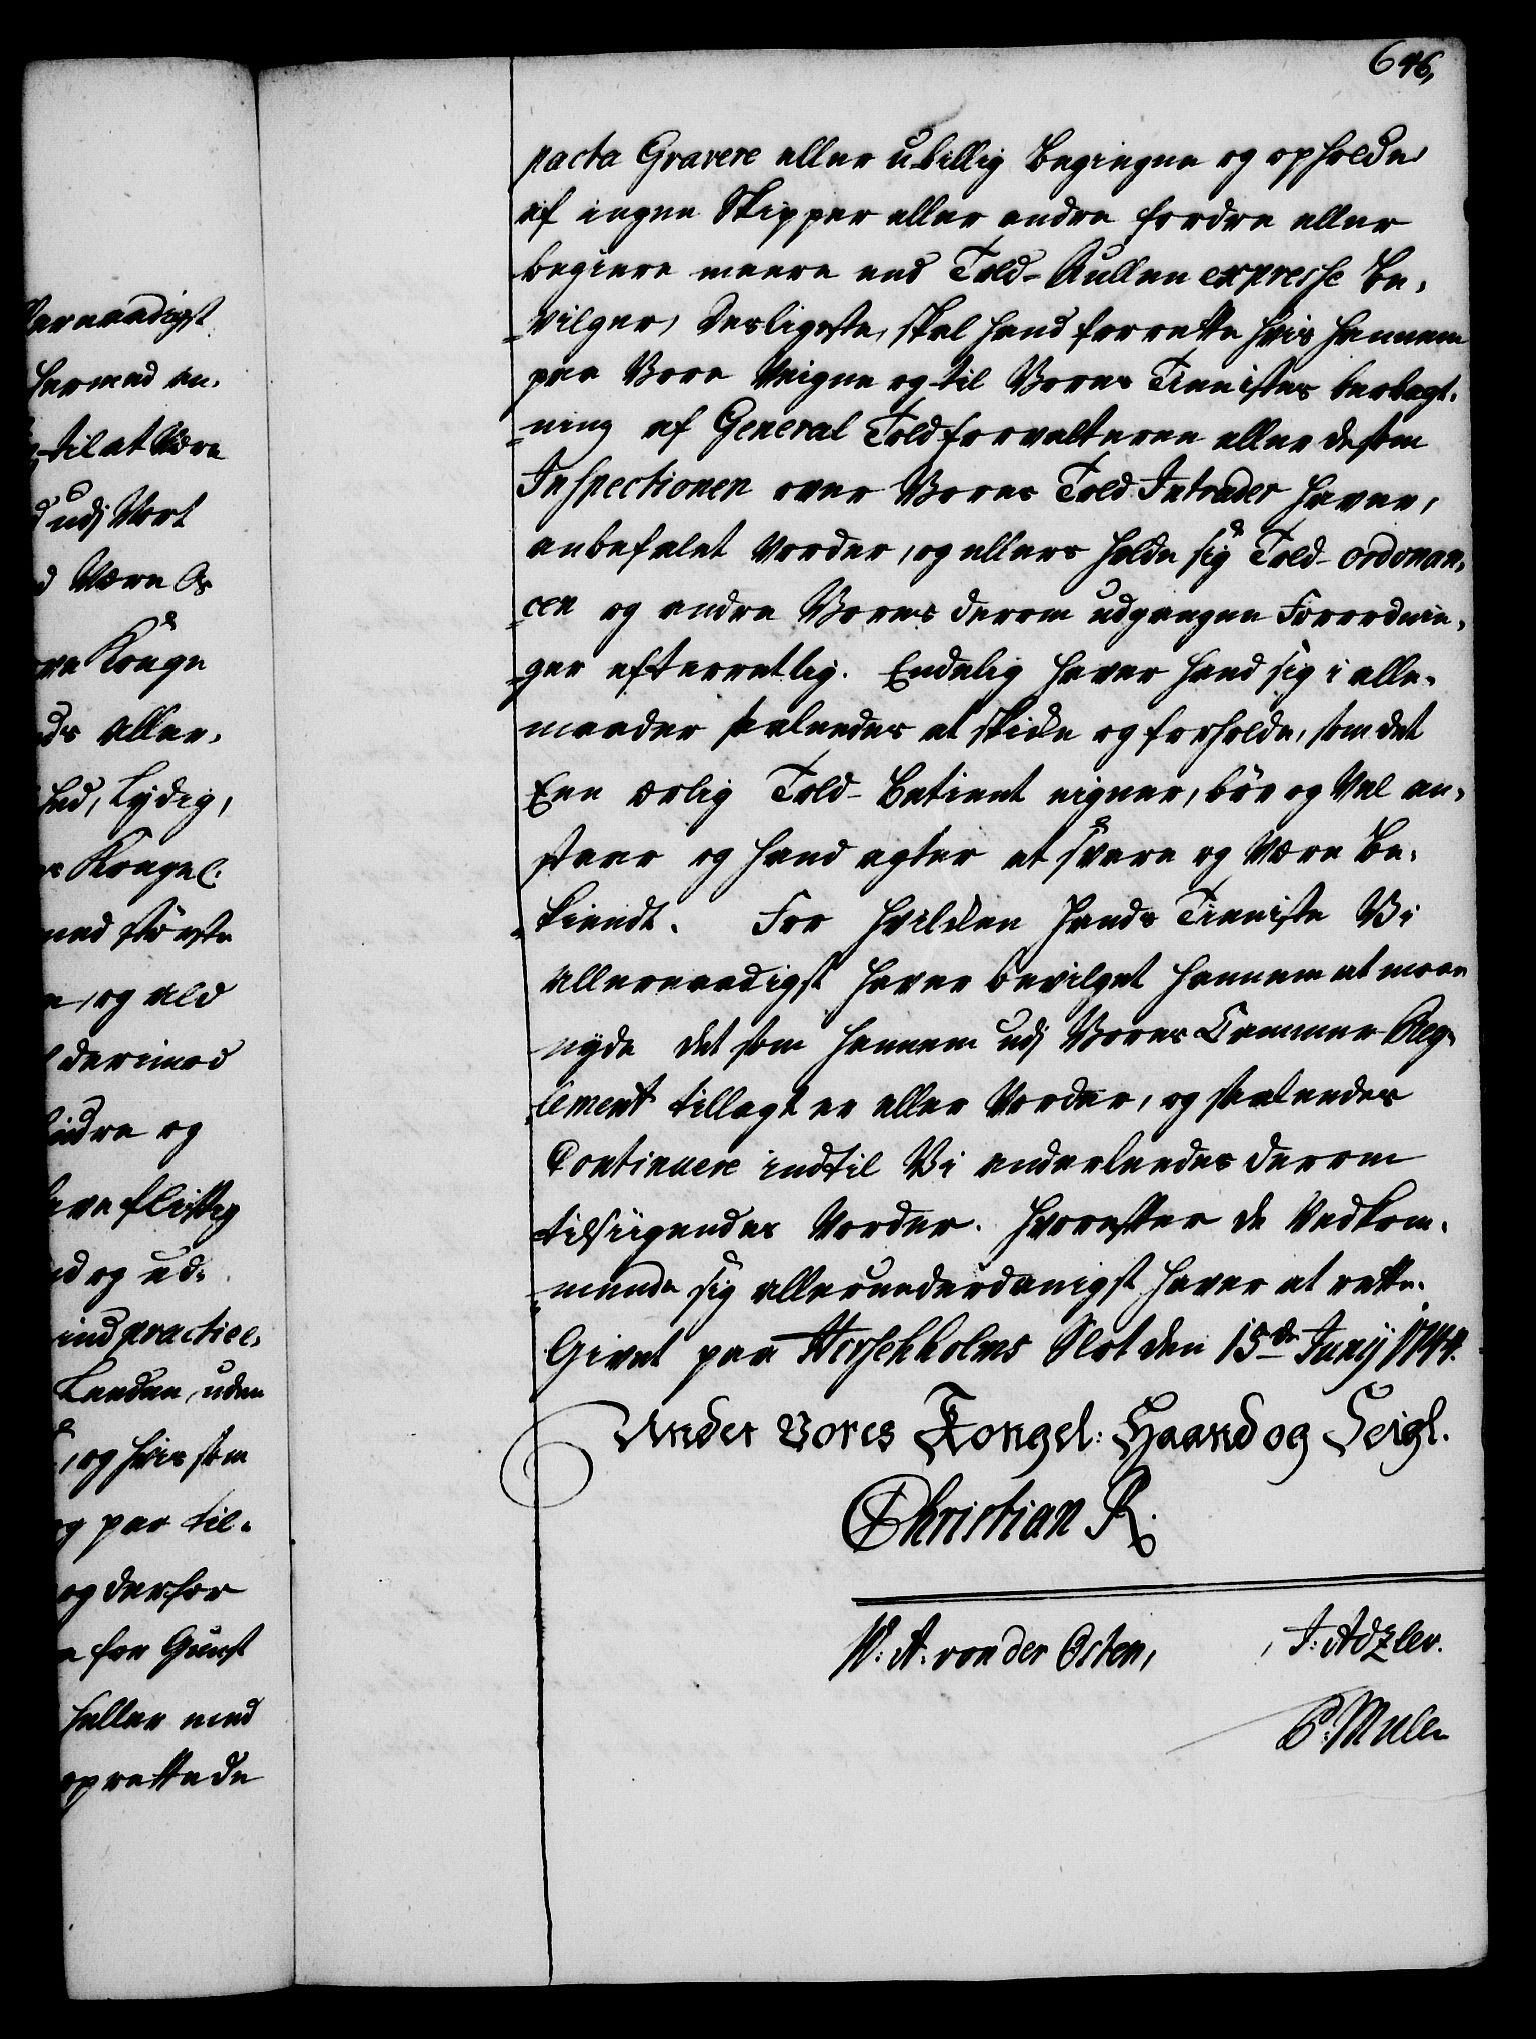 646,
pacta Gravere eller ubillig begiegne og opholde
af ingen Skipper eller andre fordre eller
begiere meere end Told-Rullen expresse be,
vilger, desligeste, skal hand forrette hvis hannem
paa Vore Veigne og til Vores Tieniestes
ning af General Toldforvalteren eller de som
Inspectionen over Vores Told Intrader haver,
anbefalet vorder, og ellers holde sig Told-ordonan,
cen og andre Vores derom udgangne Forordnin,
ger efterretlig. Endelig haver hand sig i alle,
maader saaledes at skicke og forholde, som det
Een ærlig Told-Betient eigner, bør og vel an,
staar og hand agter at svare og være be,
kiendt. For hvilcken hands Tieniste Vi
allernaadigst haver bevilget hannem at maae
nyde det som hannem udj Vores Cammer-Reg,
lement tillagt er eller vorder, og saaledes
Continuere indtil Vi anderleedes derom
tilsiigendes vorder. Hvorefter de Vedkom,
mende sig allerunderdanigst haver at rette.
Givet paa Hirschholms Slot den 15de Junij 1744.
Under Vores Kongel: Haand og Seigl.
Christian R.
W: A: von der Osten, J: Adzler.
P: Mule
lernaadigst
hermed an,
til at være
udj Vort
være Os
Konge
aller,
hed, Lydig,
Kongel.
med største
og ald
derimod
og
flittig
og ud,
ind practice,
Landen, uden
og hvis som
paa til,
og derfor
for Gunst
heller med
oprettede